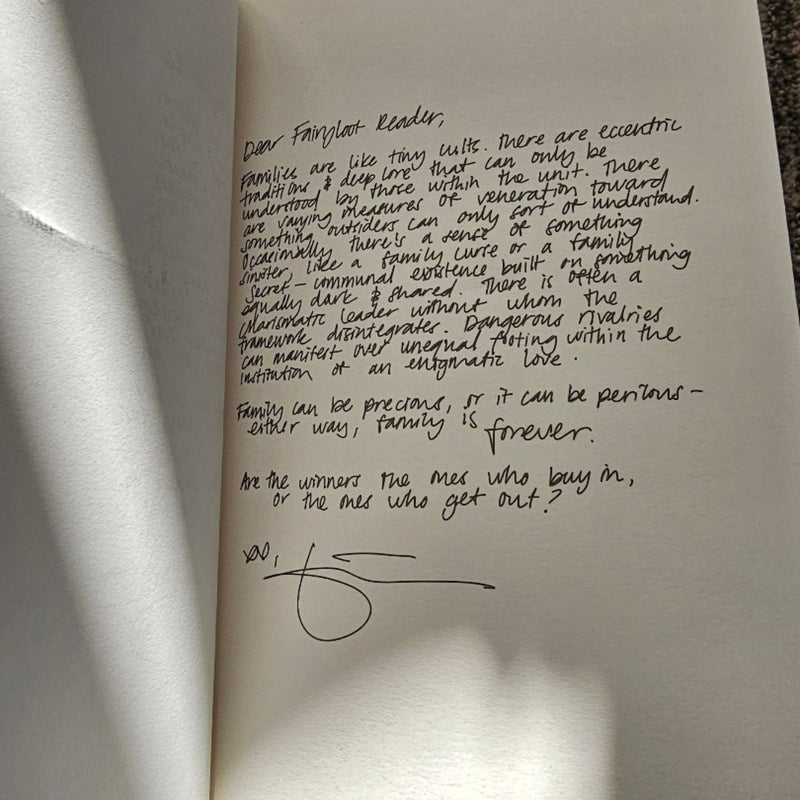 Dear Fairyloot Reader,
Families are like tiny cults. There are eccentric
traditions & deep lore that can only be
understood by those within the unit. There
are varying measures of veneration toward
something outsiders can only sort of understand.
Occasionally there's a sense of something
sinister, like a family curse or a family
secret — communal existence built on something
equally dark & shared. There is often a
charismatic leader without whom the
framework disintegrates. Dangerous rivalries
can manifest over unequal footing within the
institution of an enigmatic love.
Family can be precious, or it can be perilous —
either way, family is forever.
Are the winners the ones who buy in,
or the ones who get out?